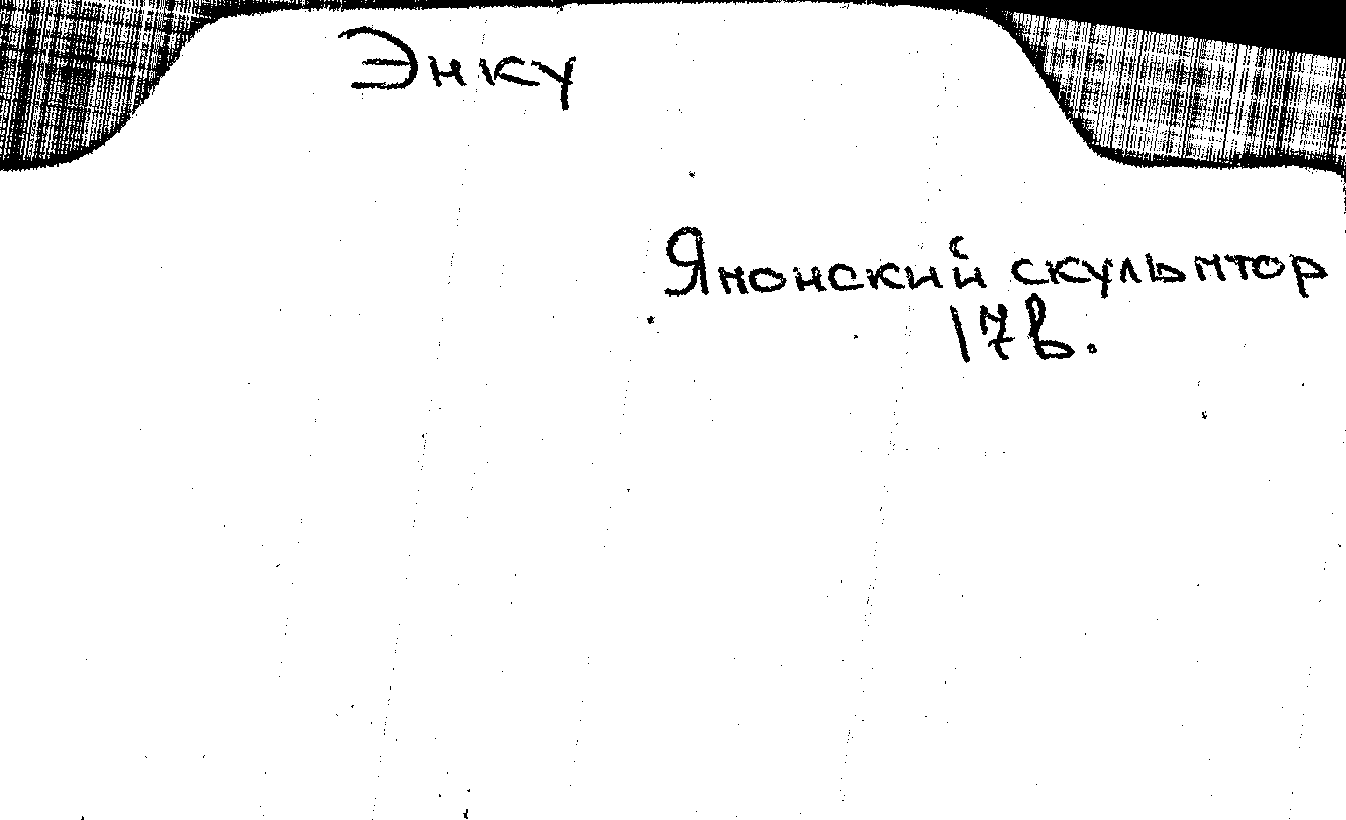 Энку
Японский скульптор
17в.